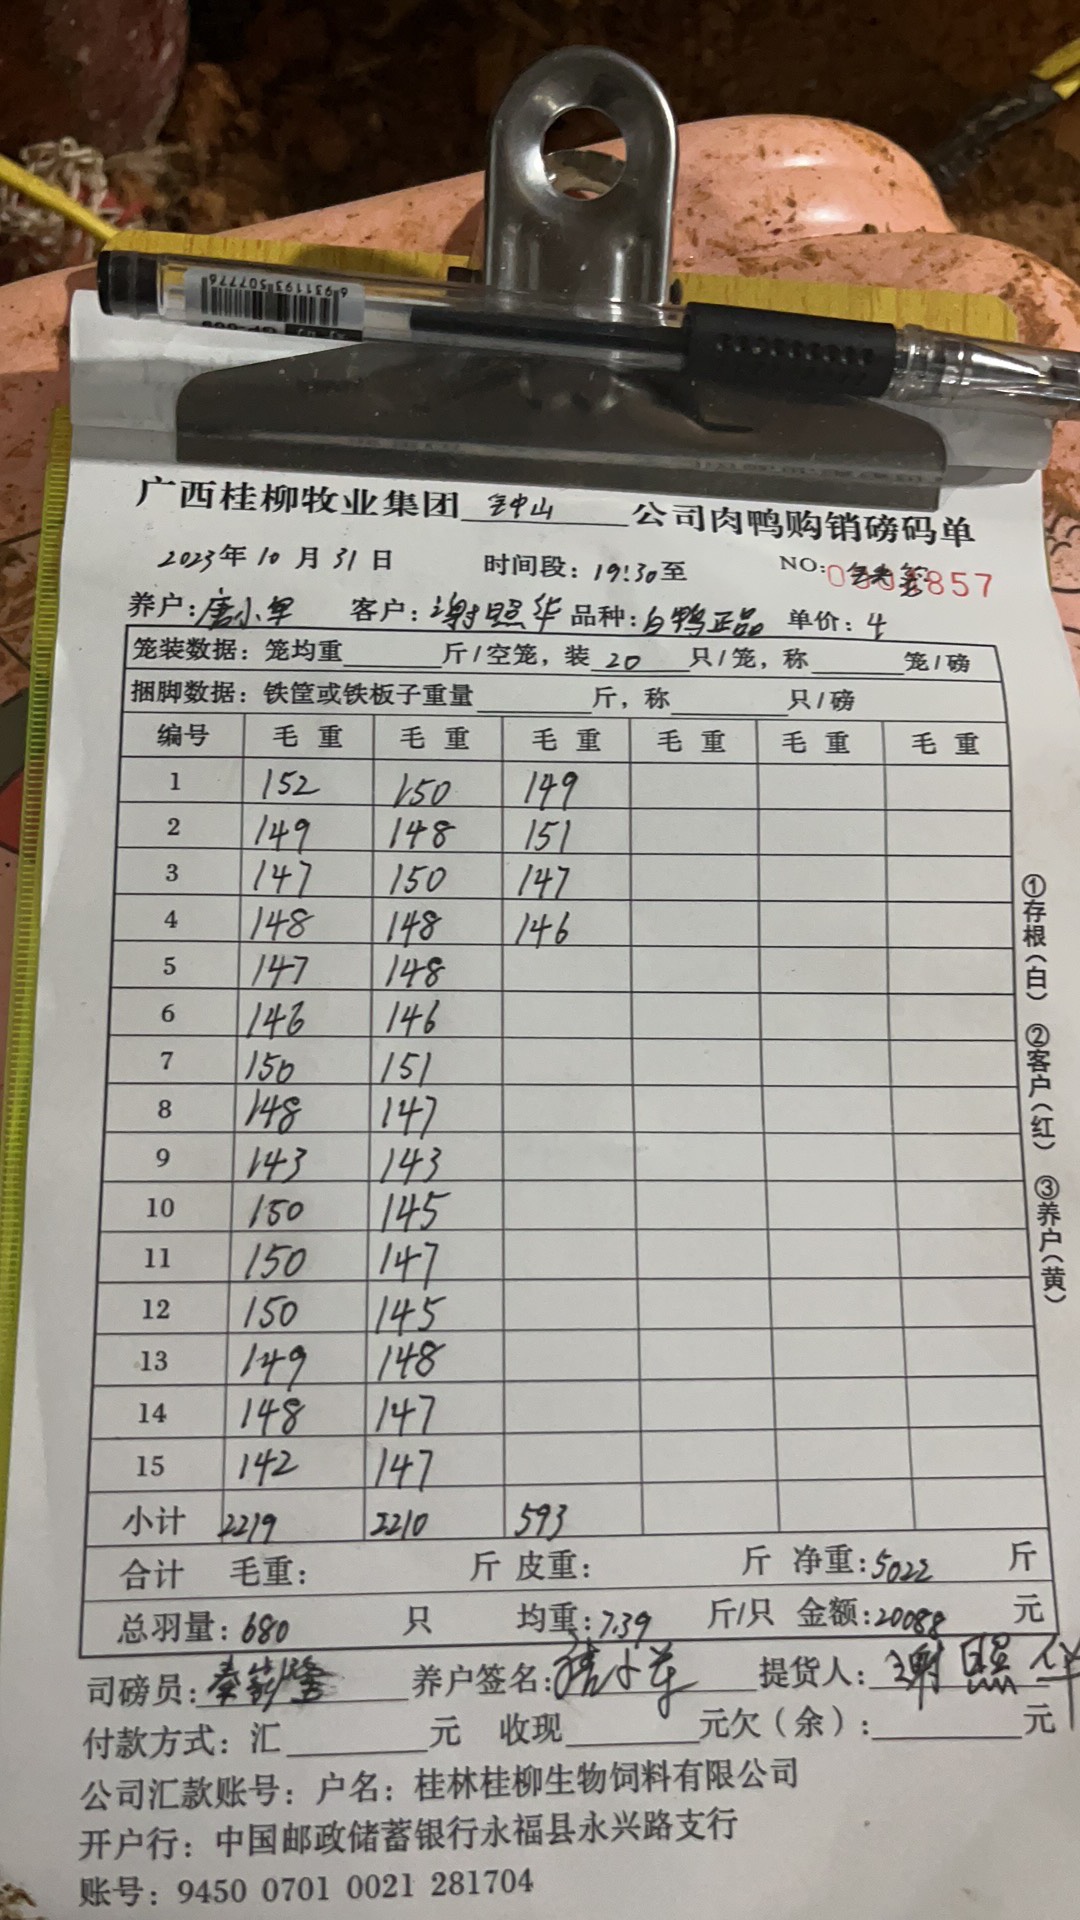 6931193507776
广西桂柳牧业集团 钟山 公司肉鸭购销磅码单
2023年10月31日 时间段：19:30至 NO: 857
养户：唐小军 客户：谢照华 品种：白鸭正品 单价：4
笼装数据：笼均重 斤/空笼，装 20 只/笼，称 笼/磅
捆脚数据：铁筐或铁板子重量 斤，称 只/磅
编号 毛重 毛重 毛重 毛重 毛重 毛重
1 152 150 149
2 149 148 151
3 147 150 147
4 148 148 146
5 147 148
6 146 146
7 150 151
8 148 147
9 143 143
10 150 145
11 150 147
12 150 145
13 149 148
14 148 147
15 142 147
小计 2219 2210 593
合计 毛重： 斤 皮重： 斤 净重：5022 斤
总羽量：680 只 均重：7.39 斤/只 金额：20088 元
司磅员： 养户签名：唐小军 提货人：谢照华
付款方式：汇 元 收现 元欠（余）： 元
公司汇款账号：户名：桂林桂柳生物饲料有限公司
开户行：中国邮政储蓄银行永福县永兴路支行
账号：9450 0701 0021 281704
①存根（白） ②客户（红） ③养户（黄）